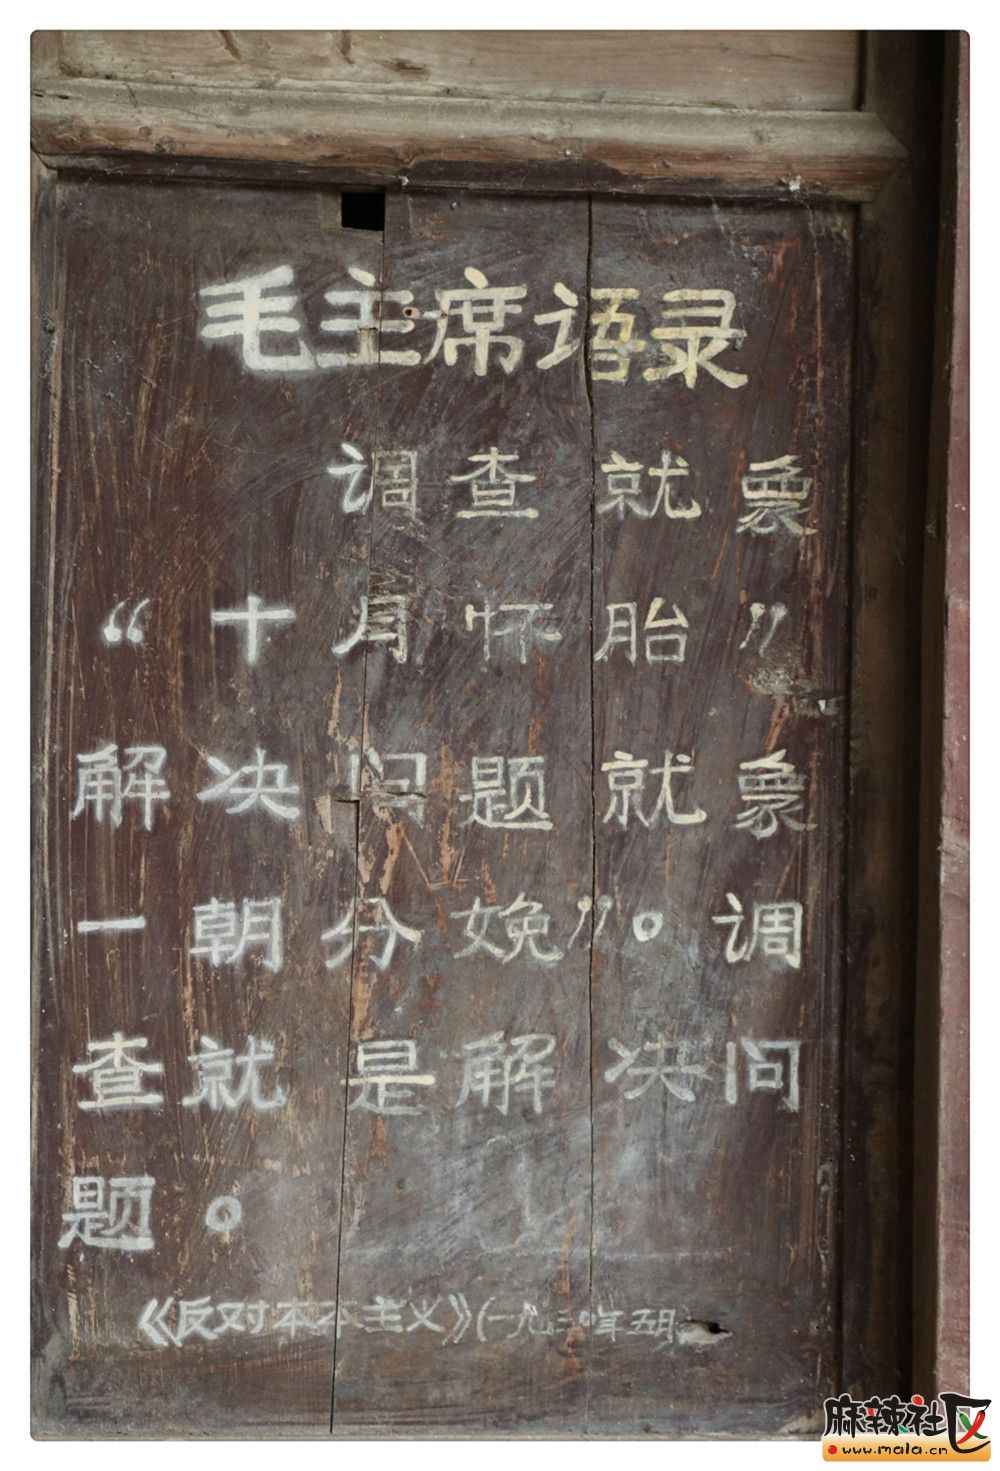 毛主席语录
调查就象
“十月怀胎”
解决问题就象
一朝分娩”。调
查就是解决问
题。
《反对本本主义》(一九三〇年五月
麻辣社区
www.mala.cn